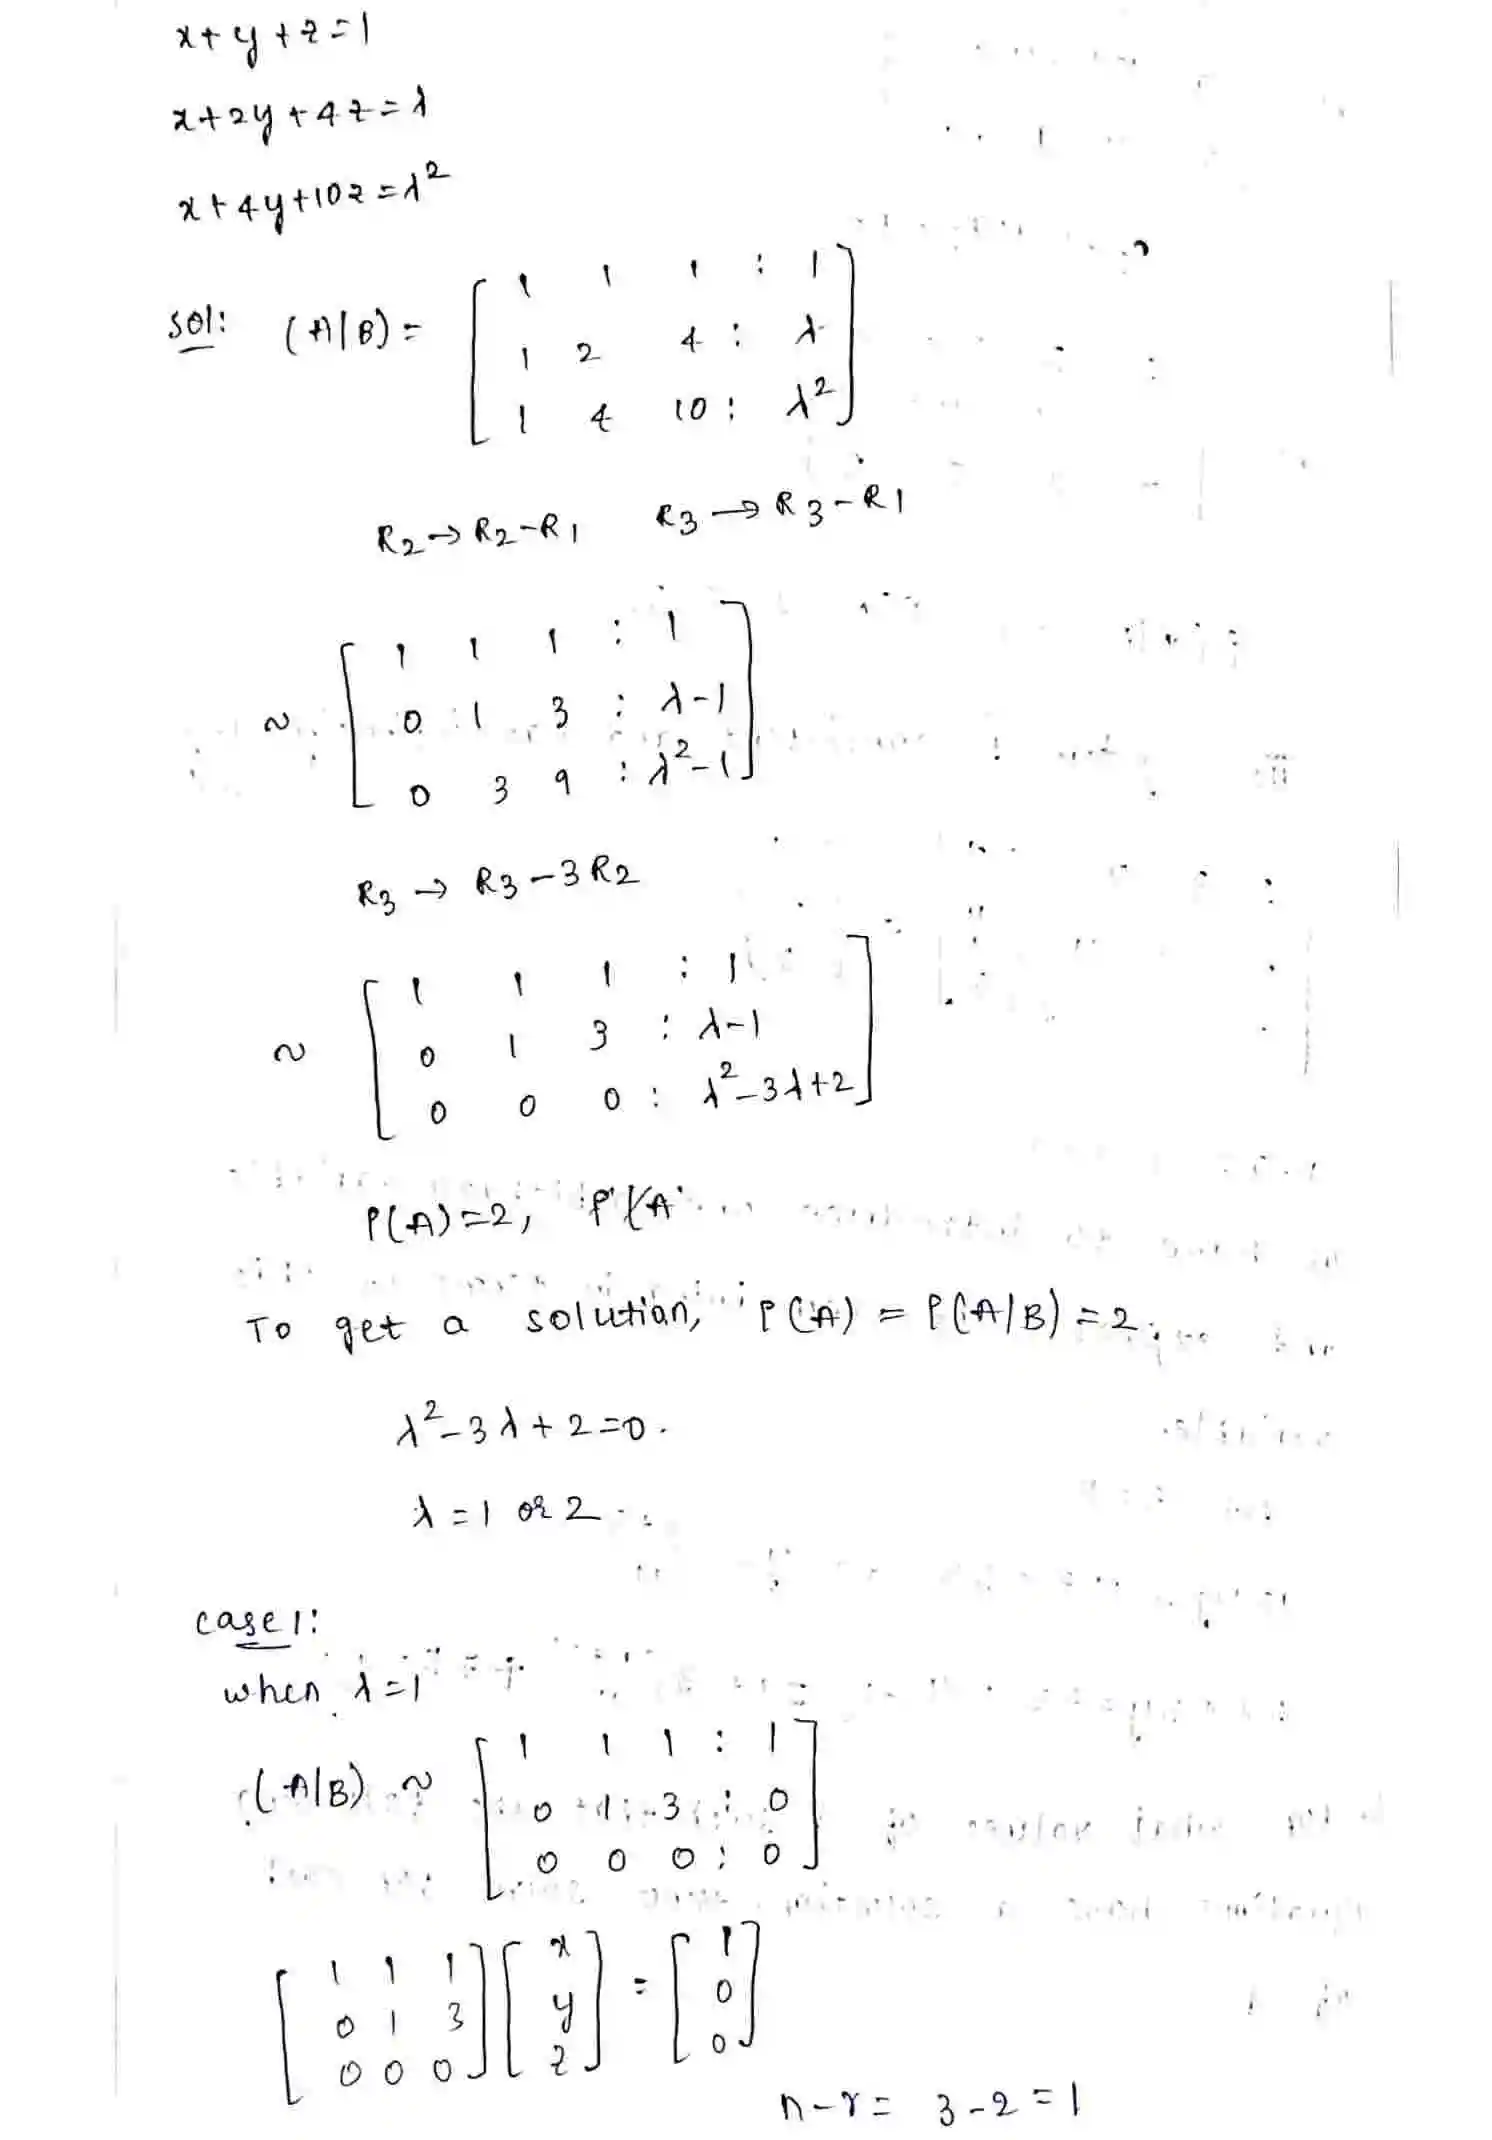 x+y+z=1
x+2y+4z=λ
x+4y+10z=λ²
sol: (A|B) = [ 1 1 1 : 1
1 2 4 : λ
1 4 10 : λ² ]
R2→R2-R1 R3→R3-R1
~ [ 1 1 1 : 1
0 1 3 : λ-1
0 3 9 : λ²-1 ]
R3→R3-3R2
~ [ 1 1 1 : 1
0 1 3 : λ-1
0 0 0 : λ²-3λ+2 ]
P(A)=2,
To get a solution, P(A) = P(A|B) = 2.
λ²-3λ+2=0.
λ=1 or 2
case1:
when λ=1
(A|B) ~ [ 1 1 1 : 1
0 1 3 : 0
0 0 0 : 0 ]
[ 1 1 1 ] [ x ] = [ 1 ]
[ 0 1 3 ] [ y ] [ 0 ]
[ 0 0 0 ] [ z ] [ 0 ]
n-r= 3-2=1